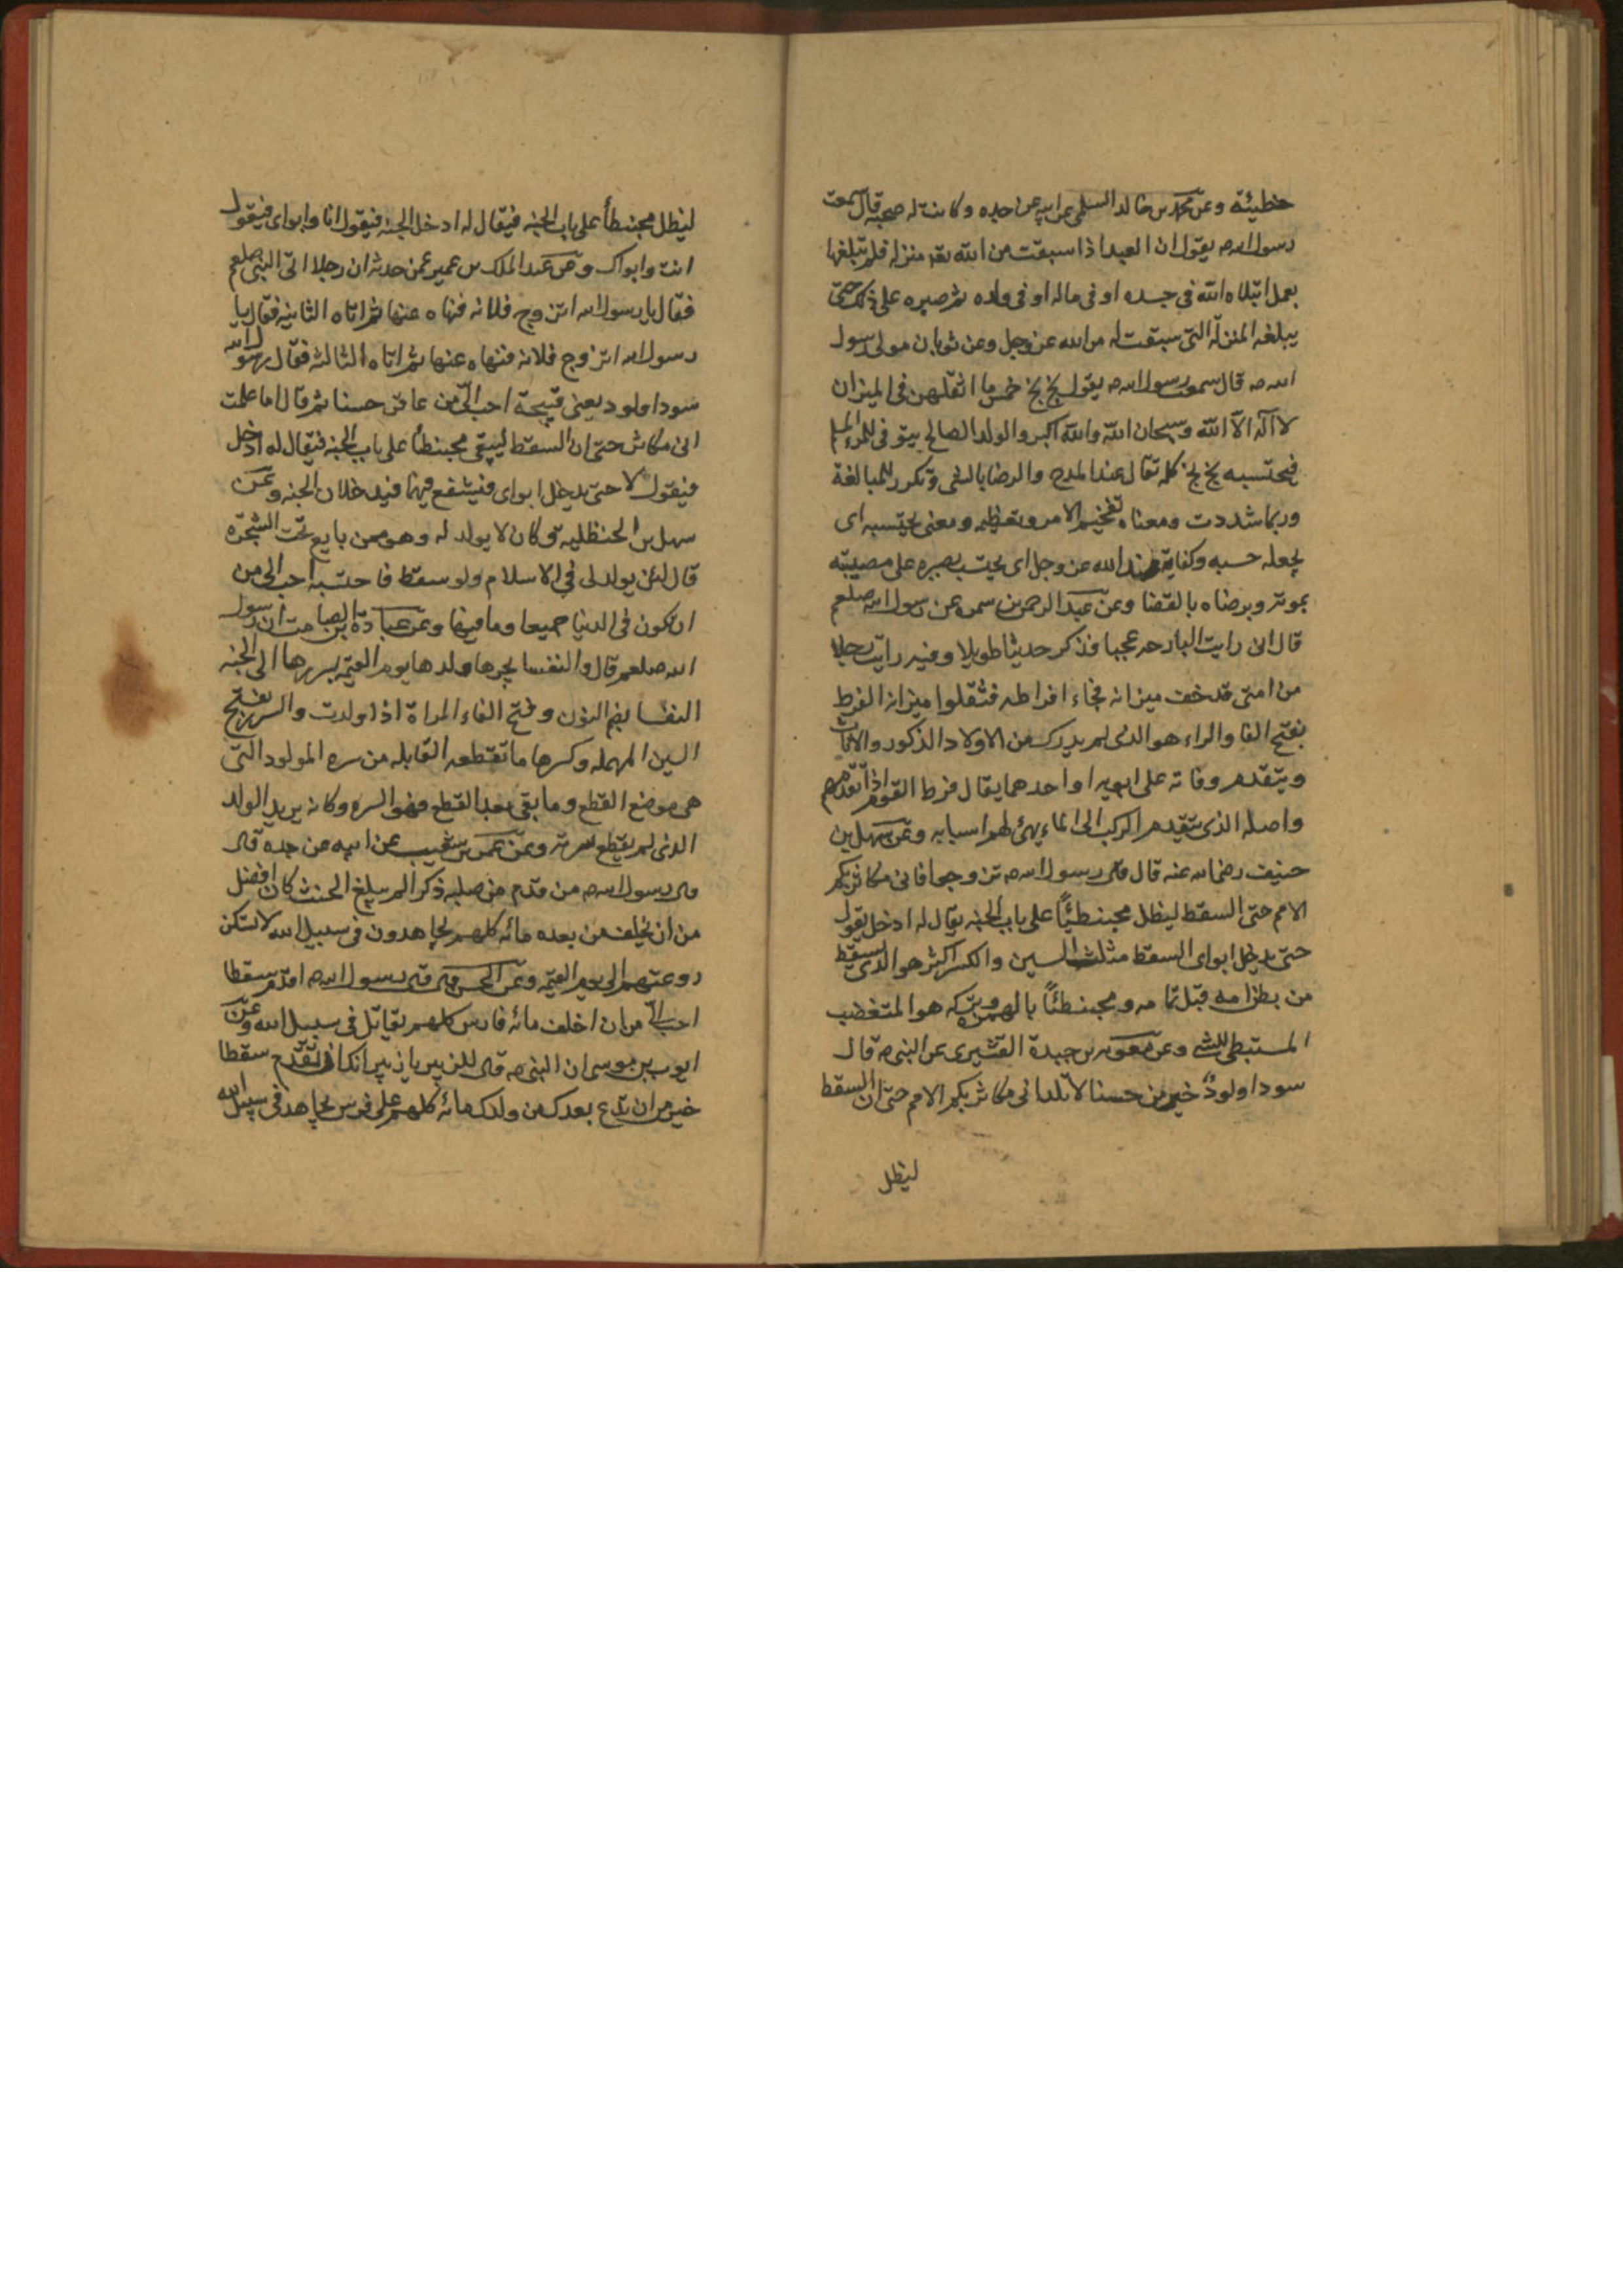 خطيئة وعن محمد بن خالد السلمى عن ابيه عن جده وكانت له صحبة قال سمعت
رسول الله ص يقول ان العبد اذا سبقت من الله تعه منزلة فلم يبلغها
بعمل ابتلاه الله فى جسده او فى ماله او فى ولده ثم صبره على ذلك حتى
يبلغه المنزلة التى سبقت له من الله عز وجل وعن ثوبان مولى رسول
الله ص قال سمعت رسول الله ص يقول بخ بخ خمس ما اثقلهن فى الميزان
لا اله الا الله وسبحان الله والله اكبر والولد الصالح يتوفى للمرء المسلم
فيحتسبه بخ بخ كلمة تقال عند المدح والرضا بالشى وتكرر للمبالغة
وربما شددت ومعناه تفخيم الامر وتعظيمه ومعنى يحتسبه اى
يجعله حسبه وكفاية عند الله عز وجل اى يحتسب بصبره على مصيبته
بموته وبرضاه بالقضا وعن عبد الرحمن بن سمره عن رسول الله صلعم
قال انى رايت البارحه عجبا فذكر حديثا طويلا وفيه رايت رجلا
من امتى قد خف ميزانه فجاء افراطه فثقلوا ميزانه الفرط
بفتح الفا والراء هو الذى لم يدرك من الاولاد الذكور والاناث
ويتقدم وفاته على ابويه او احدهما يقال فرط القوم اذا تقدمهم
واصله الذى يتقدم الركب الى الماء يهئ لهم اسبابه وعن سهل بن
حنيف رضى الله عنه قال قال رسول الله ص تزوجوا فانى مكاثر بكم
الامم حتى السقط ليظل محبنطئاً على باب الجنه يقال له ادخل يقول
حتى يدخل ابواى السقط مثلث السين والكسر اكثر هو الذى يسقط
من بطن امه قبل تمامه ومحبنطئاً بالهمزة وتركه هو المتغضب
المستبطى للشى وعن معويه بن حيدة القشيرى عن النبى ص قال
سودا ولودٌ خير من حسنا لا تلد انى مكاثر بكم الامم حتى ان السقط
ليظل
ليظل محبنطأ على باب الجنه فيقال له ادخل الجنه فيقول انا وابواى فيقول
انت وابواك وعن عبد الملك بن عمير عمن حدثه ان رجلا اتى النبى صلعم
فقال يا رسول الله اتزوج فلانه فنهاه عنها ثم اتاه الثانيه فقال يا
رسول الله اتزوج فلانه فنهاه عنها ثم اتاه الثالثه فقال رسول الله
سودا ولود يعنى قبيحة احب الىّ من عاقر حسنا ثم قال اما علمت
انى مكاثر حتى ان السقط ليبقى محبنطأ على باب الجنه فيقال له ادخل
فيقول لا حتى يدخل ابواى فيشفع فيهما فيدخلان الجنه وعن
سهل بن الحنظليه وكان لا يولد له وهو ممن بايع تحت الشجرة
قال لئن يولد لى فى الاسلام ولو سقط فاحتسبه احب الى من
ان يكون فى الدنيا جميعا وما فيها وعن عبادة بن الصامت ان رسول
الله صلعم قال والنفسا يجرها ولدها يوم القيمه بسررها الى الجنه
النفسا بضم النون وفتح الفاء المراة اذا ولدت والسرر بفتح
السين المهمله وكسرها ما تقطعه القابله من سره المولود التى
هى موضع القطع وما بقى بعد القطع فهو السره وكانه يريد الولد
الذى لم يقطع سرته وعن عمر بن شعيب عن ابيه عن جده قال
قال رسول الله ص من قدم من صلبه ذكرا لم يبلغ الحنث كان افضل
من ان يخلف من بعده مائه كلهم يجاهدون فى سبيل الله لا تسكن
روعتهم الى يوم القيمه وعن الحسن قال قال رسول الله ص اقدم سقطا
احب الىّ من ان اخلف مائه فارس كلهم يقاتل فى سبيل الله وعن
ايوب بن موسى ان النبى ص قال للزبير يا زبير انك ان تقدم سقطا
خير من ان تدع بعدك من ولدك مائه كلهم على فرس يجاهد فى سبيل الله